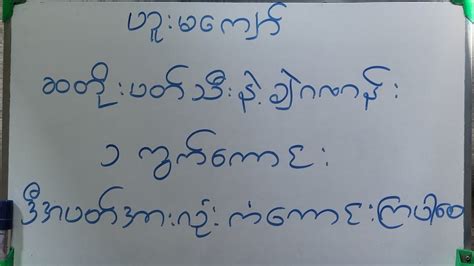 ဟူးမကျော်
ဆတိုးပတ်သီးနဲ့ချဲဂဏန်း
၁ ကွက်ကောင်း
ဒီအပတ်အားလုံးကံကောင်းကြပါစေ